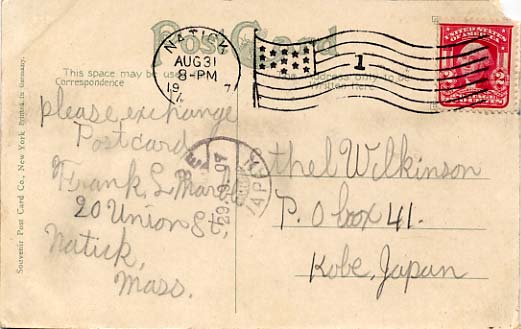 Post Card
NATICK
AUG 31
8-PM
1907
1
UNITED STATES OF AMERICA
2 2
This space may be used
Correspondence
only to be
Written here
please exchange
Postcard
Frank L.
20 Union St,
Natick,
Mass.
Ethel Wilkinson
P. O box 41.
Kobe, Japan
KOBE
29.9.07
JAPAN
Souvenir Post Card Co., New York Printed in Germany.